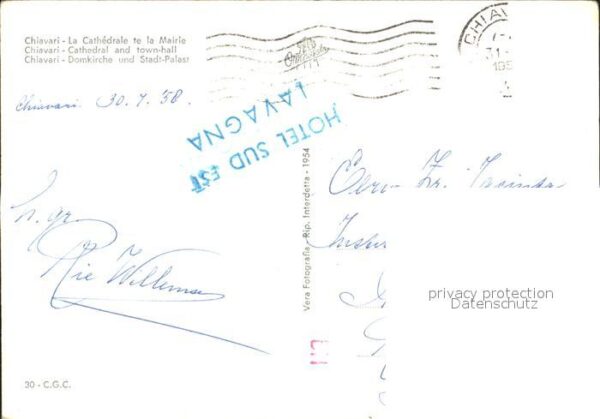 Chiavari - La Cathédrale te la Mairie
Chiavari - Cathedral and town-hall
Chiavari - Domkirche und Stadt-Palast
CHIAV
Chiavari. 30.7.'58.
HOTEL SUD EST
LAVAGNA
h. gr.
Rie Willemse
Vera Fotografia - Rip. Interdetta - 1954
Eerw. Zr.
privacy protection
Datenschutz
30 - C.G.C.